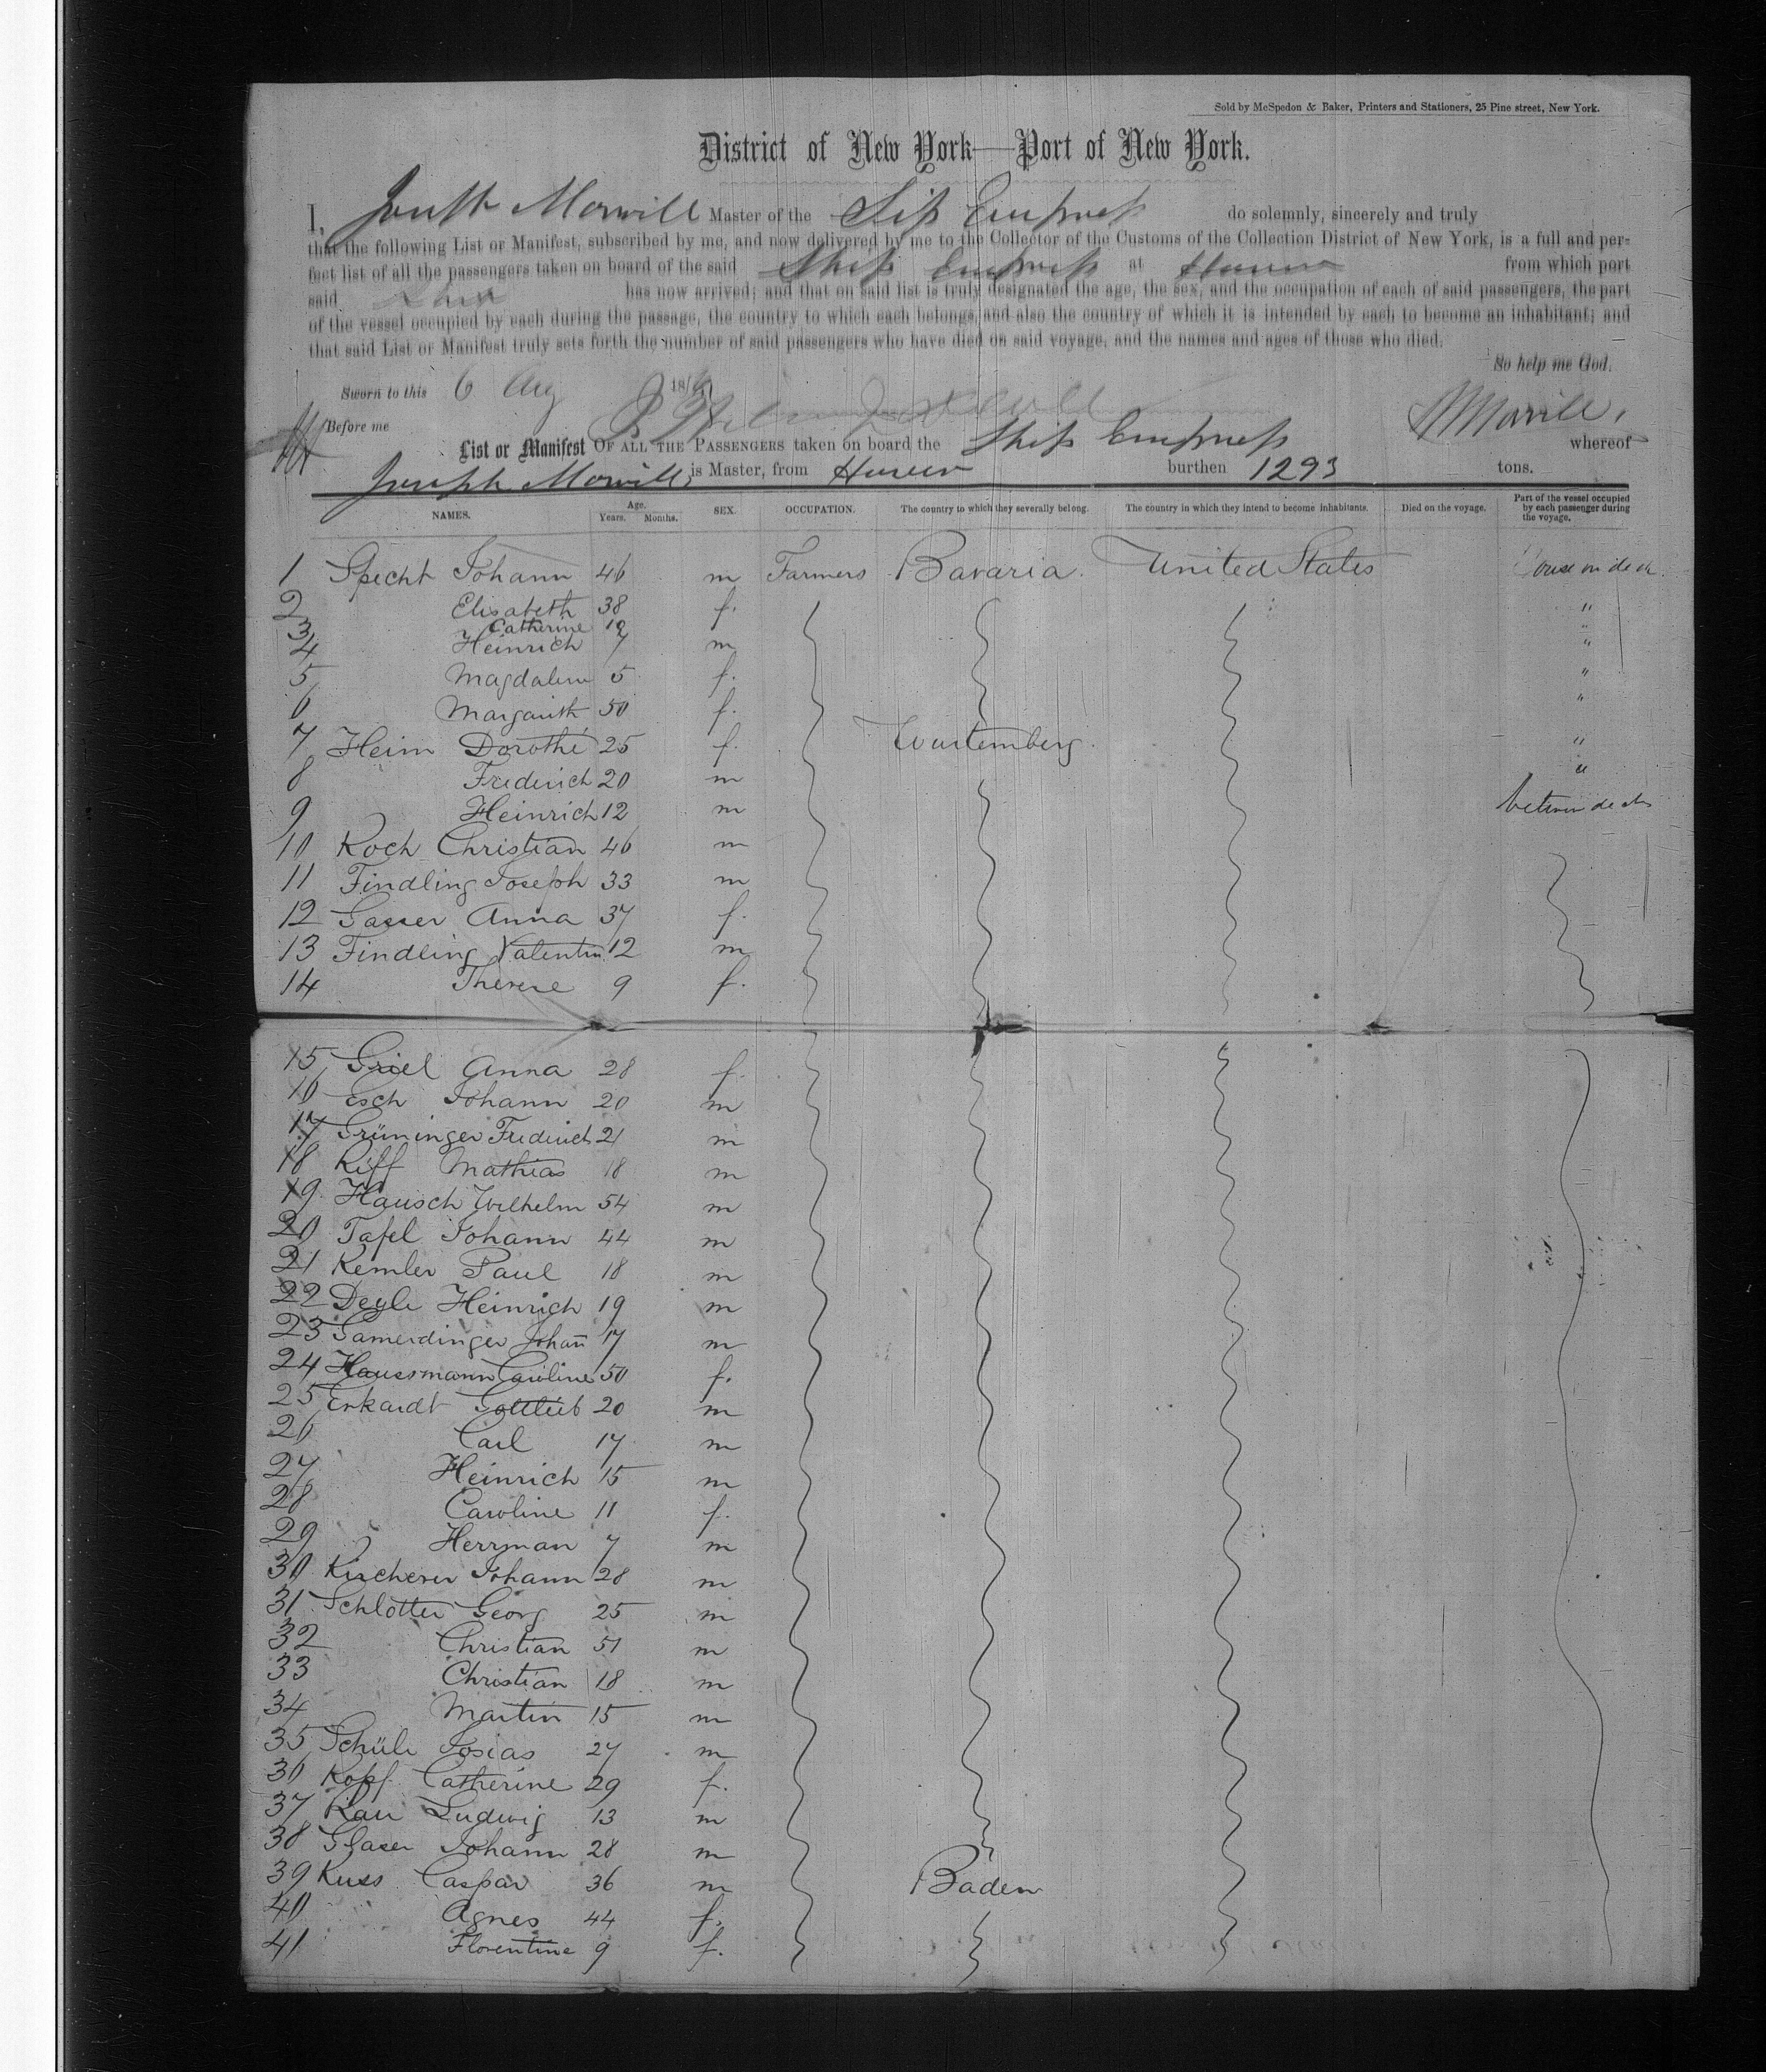 Sold by McSpedon & Baker, Printers and Stationers, 25 Pine street, New York.
District of New York—Port of New York.
I, Joseph Morrill Master of the Ship Empress do solemnly, sincerely and truly
that the following List or Manifest, subscribed by me, and now delivered by me to the Collector of the Customs of the Collection District of New York, is a full and per-
fect list of all the passengers taken on board of the said Ship Empress at Havre from which port
said Ship has now arrived; and that on said list is truly designated the age, the sex, and the occupation of each of said passengers, the part
of the vessel occupied by each during the passage, the country to which each belongs, and also the country of which it is intended by each to become an inhabitant; and
that said List or Manifest truly sets forth the number of said passengers who have died on said voyage, and the names and ages of those who died.
So help me God.
Sworn to this 6 Aug 18
Before me
J Morrill
List or Manifest OF ALL THE PASSENGERS taken on board the Ship Empress whereof
Joseph Morrill, is Master, from Havre burthen 1293 tons.
NAMES. Age. Years. Months. SEX. OCCUPATION. The country to which they severally belong. The country in which they intend to become inhabitants. Died on the voyage. Part of the vessel occupied by each passenger during the voyage.
1 Specht Johann 46 m Farmers Bavaria. United States House on deck
2 Elisabeth 38 f. "
3 Catherine "
4 Heinrich 7 m "
5 Magdalene 5 f. "
6 Margareth 50 f. "
7 Heim Dorothé 25 f. Wurtemberg. "
8 Frederich 20 m "
9 Heinrich 12 m between decks
10 Koch Christian 46 m
11 Findling Joseph 33 m
12 Gasser Anna 37 f.
13 Findling Valentin 12 m
14 Therese 9 f.
15 Griel Anna 28 f.
16 Esch Johann 20 m
17 Grüninger Frederich 21 m
18 Riff Mathias 18 m
19 Hausch Wilhelm 54 m
20 Tafel Johann 44 m
21 Kemler Paul 18 m
22 Deyle Heinrich 19 m
23 Gamerdinger Johañ 17 m
24 Haussmann Caroline 50 f.
25 Erhardt Gottlieb 20 m
26 Carl 17 m
27 Heinrich 15 m
28 Caroline 11 f.
29 Herrman 7 m
30 Kircherer Johann 28 m
31 Schlotter Georg 25 m
32 Christian 51 m
33 Christian 18 m
34 Martin 15 m
35 Schüle Josias 27 m
36 Kopf Catherine 29 f.
37 Rau Ludwig 13 m
38 Glaser Johann 28 m
39 Kuss Caspar 36 m Baden
40 Agnes 44 f.
41 Florentine 9 f.